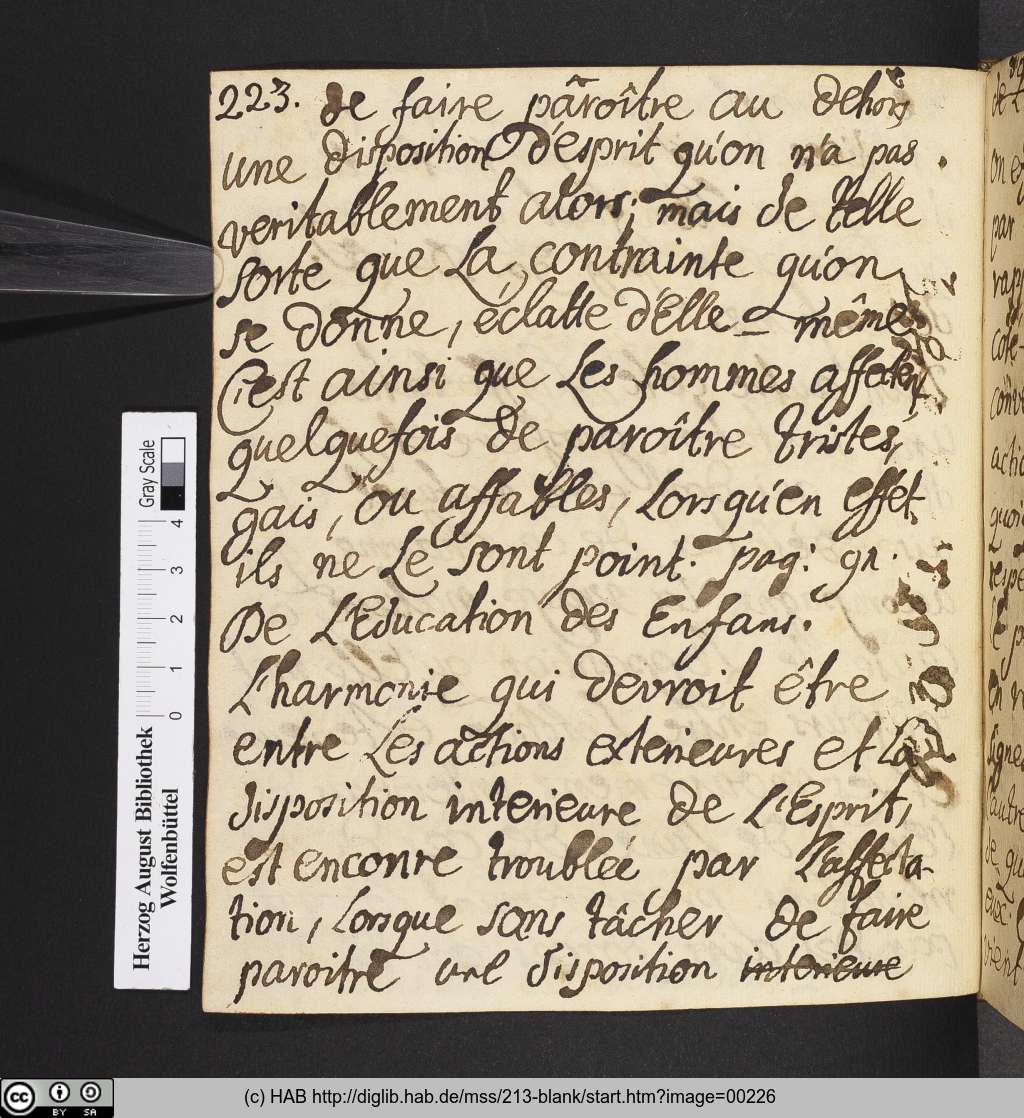 223. de faire pâroître au dehors
une disposition d'esprit qu'on n'a pas
veritablement alors; mais de telle
sorte que La contrainte qu'on
se donne, éclatte d'Elle-même.
C'est ainsi que Les hommes affectent
quelquefois de paroître tristes,
gais, ou affables, Lorsqu'en effet
ils ne Le sont point. pag: 91.
De L'Education des Enfans.
L'harmonie qui devroit être
entre Les actions exterieures et La
disposition interieure de L'Esprit,
est enconre troublée par L'affecta-
tion, Lorsque sans tâcher de faire
paroitre une disposition interieure
Herzog August Bibliothek
Wolfenbüttel
Gray Scale
0 1 2 3 4
(c) HAB http://diglib.hab.de/mss/213-blank/start.htm?image=00226
cc BY SA